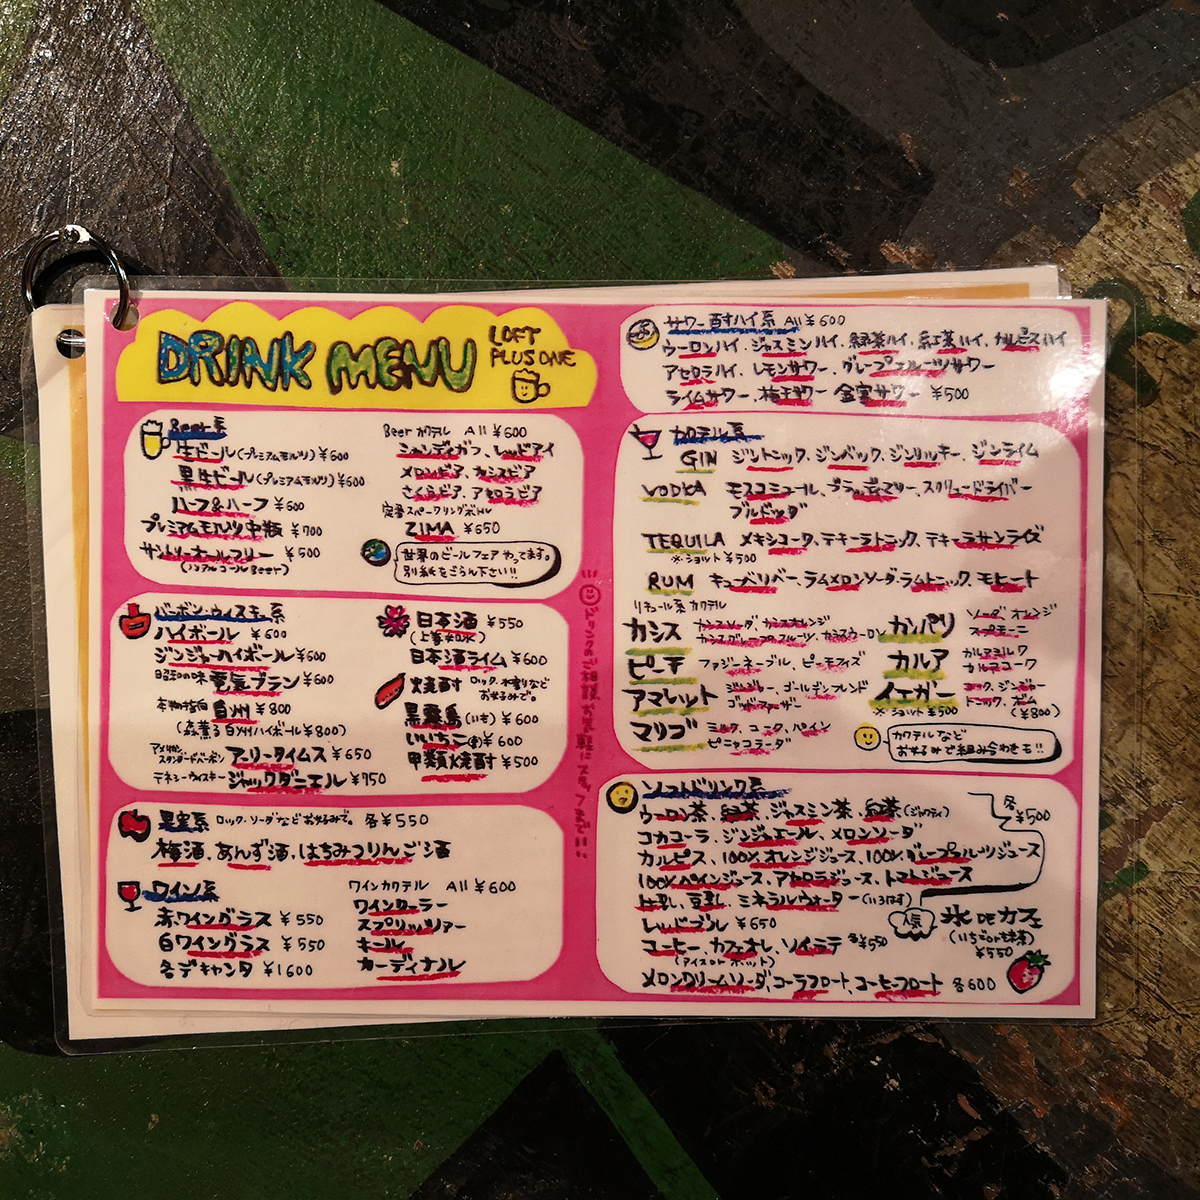 DRINK MENU
LOFT
PLUS ONE
Beer系
生ビール(プレミアムモルツ) ¥600
黒生ビール(プレミアムモルツ) ¥600
ハーフ&ハーフ ¥600
プレミアムモルツ中瓶 ¥700
サントリーオールフリー ¥500
(ノンアルコールBeer)
Beer カクテル All ¥600
シャンディガフ、レッドアイ
メロンビア、カシスビア
さくらビア、アセロラビア
定番スパークリングボトル
ZIMA ¥650
世界のビールフェアやってます。
別紙をごらん下さい!!
バーボン・ウイスキー系
ハイボール ¥600
ジンジャーハイボール ¥600
昭和の味 電気ブラン ¥600
本物指向 白州 ¥800
(森薫る白州ハイボール ¥800)
アメリカン
スタンダードバーボン アーリータイムス ¥650
テネシーウィスキー ジャックダニエル ¥750
日本酒 ¥550
(上善如水)
日本酒ライム ¥600
焼酎 ロック、水割りなど
お好みで。
黒霧島(いも) ¥600
いいちこ(麦) ¥600
甲類焼酎 ¥500
果実系 ロック・ソーダなどお好みで。 各¥550
梅酒、あんず酒、はちみつりんご酒
ワイン系
赤ワイングラス ¥550
白ワイングラス ¥550
各デキャンタ ¥1600
ワインカクテル All ¥600
ワインクーラー
スプリッツァー
キール
カーディナル
サワー酎ハイ系 All ¥600
ウーロンハイ、ジャスミンハイ、緑茶ハイ、紅茶ハイ、カルピスハイ
アセロラハイ、レモンサワー、グレープフルーツサワー
ライムサワー、梅干サワー 金宮サワー ¥500
カクテル系
GIN ジントニック、ジンバック、ジンリッキー、ジンライム
VODKA モスコミュール、ブラッディマリー、スクリュードライバー
ブルドッグ
TEQUILA メキシコーク、テキーラトニック、テキーラサンライズ
※ショット¥500
RUM キューバリバー、ラムメロンソーダ、ラムトニック、モヒート
リキュール系カクテル
カシス カシスソーダ カシスオレンジ
カシスグレープフルーツ、カシスウーロン
ピーチ ファジーネーブル、ピーチフィズ
アマレット ジンジャー、ゴールデンフレンド
ゴッドファーザー
マリブ ミルク、コーク、パイン
ピニャコラーダ
カンパリ ソーダ オレンジ
スプモーニ
カルア カルアミルク
カルアコーク
イエガー コーク、ジンジャー
※ショット¥500 トニック、ボム
(¥800)
カクテルなど
お好みで組み合わせも!!
ソフトドリンク系
ウーロン茶、緑茶、ジャスミン茶、紅茶(ジャワティ) 各¥500
コカコーラ、ジンジャエール、メロンソーダ
カルピス、100%オレンジジュース、100%グレープフルーツジュース
100%パインジュース、アセロラジュース、トマトジュース
牛乳、豆乳、ミネラルウォーター(いろはす)
レッドブル ¥650
コーヒー、カフェオレ、ソイラテ 各¥550
(アイスorホット)
メロンクリームソーダ、コーラフロート、コーヒーフロート 各600
人気 氷DEカフェ
(いちごor抹茶)
¥550